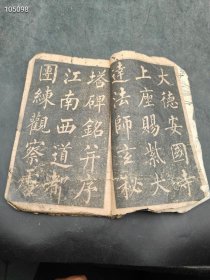 105098
大德安國寺
上座賜紫大
達法師玄祕
塔碑銘并序
江南西道都
團練觀察處